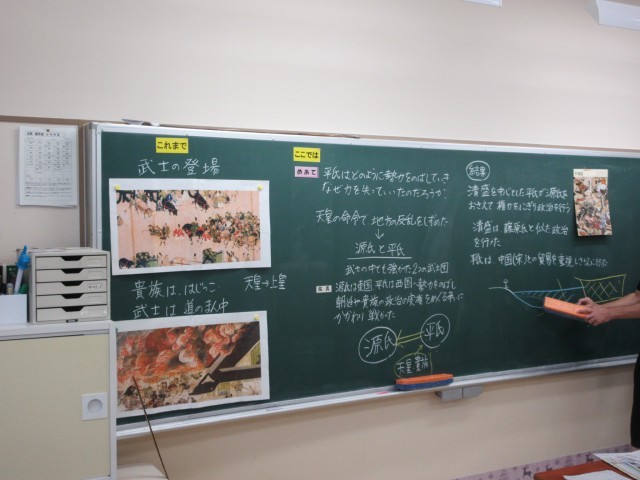 これまで
武士の登場
貴族は、はじっこ
武士は 道のまん中
天皇→上皇
ここでは
めあて
平氏はどのように勢力をのばしていき
なぜ力を失っていったのだろうか?
天皇の命令で 地方の反乱をしずめた
源氏と平氏
武士の中でも強かった2つの武士団
源氏は東国 平氏は西国へ勢力をのばし
朝廷や貴族の政治の実権をめぐる争いで
かかわり 戦かった
源氏
平氏
天皇 貴族
清盛を中心とした平氏が源氏を
おさえて 権力をにぎり政治を行う
清盛は 藤原氏と似た政治
を行った
中国(宋)との貿易を重視し